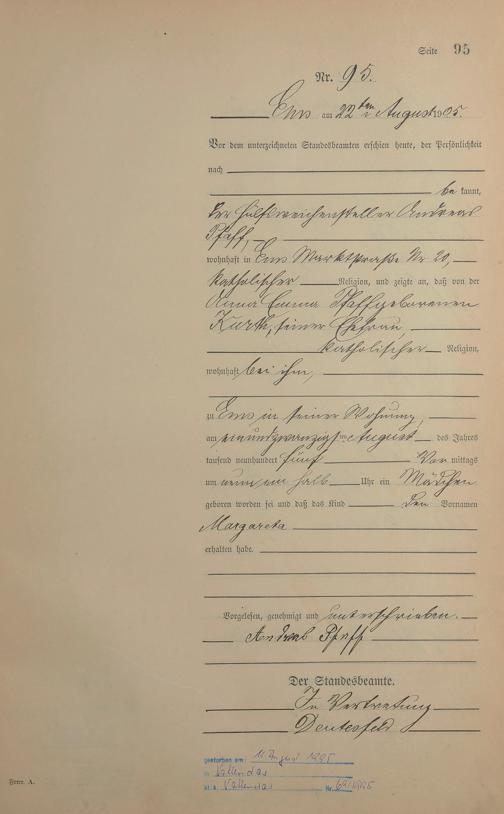 Seite 95
Nr. 95.
Ems am 22ten August 1905.
Vor dem unterzeichneten Standesbeamten erschien heute, der Persönlichkeit
nach
bekannt,
der Hülfsweichensteller Andreas
Pfaff,
wohnhaft in Ems Marktstraße Nr 20,
katholischer Religion, und zeigte an, daß von der
Anna Emma Pfaff geborenen
Kurth, seiner Ehefrau,
katholischer Religion,
wohnhaft bei ihm,
zu Ems in seiner Wohnung,
am einundzwanzigsten August des Jahres
tausend neunhundert fünf Vor mittags
um neun ein halb Uhr ein Mädchen
geboren worden sei und daß das Kind den Vornamen
Margareta
erhalten habe.
Vorgelesen, genehmigt und unterschrieben.
Andreas Pfaff
Der Standesbeamte.
In Vertretung
gestorben am: 11. August 1995
in Vallendar
St.A. Vallendar Nr.
Form. A.